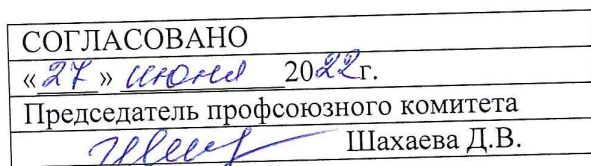 СОГЛАСОВАНО
«27» июня 2022г.
Председатель профсоюзного комитета
Шахаева Д.В.